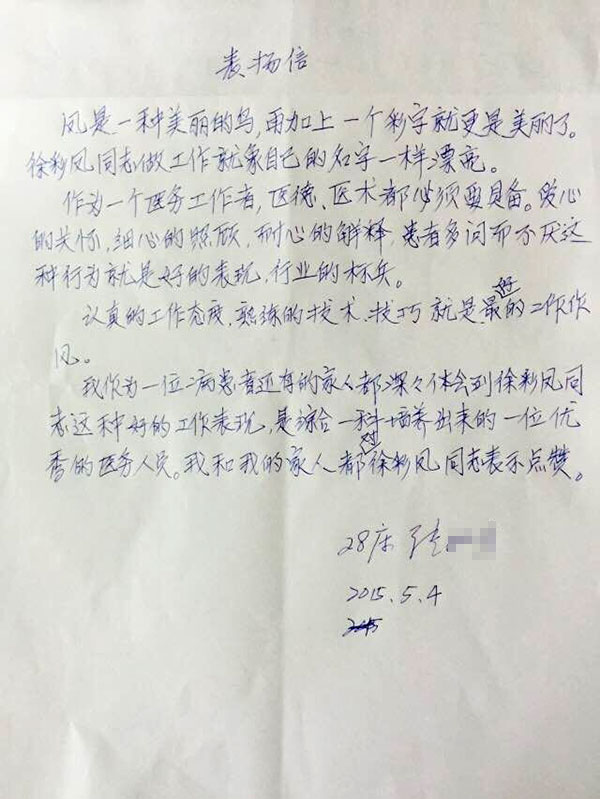 表扬信
凤是一种美丽的鸟,再加上一个彩字就更是美丽了。
徐彩凤同志做工作就象自己的名字一样漂亮。
作为一个医务工作者,医德、医术都必须要具备。爱心
的关怀,细心的照顾,耐心的解释,患者多问而不厌这
种行为就是好的表现,行业的标兵。
认真的工作态度,熟练的技术、技巧就是最好的工作作
风。
我作为一位病患者还有的家人都深々体会到徐彩凤同
志这种好的工作表现,是综合一科培养出来的一位优
秀的医务人员。我和我的家人都对徐彩凤同志表示点赞。
28床
2015.5.4